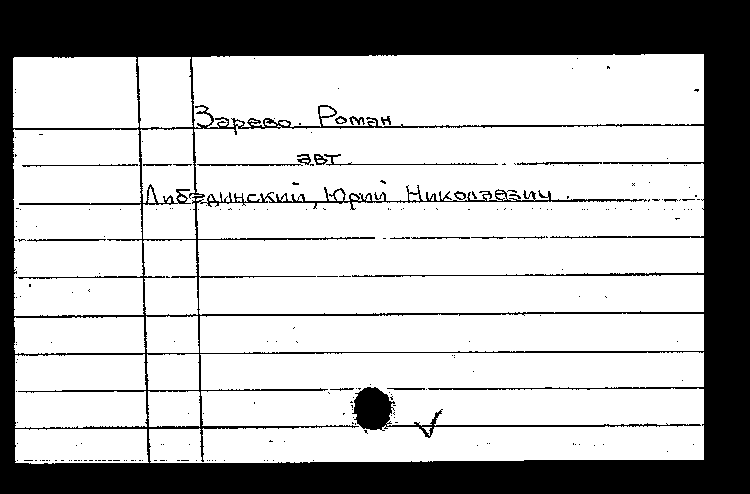 Зарево. Роман.
авт.
Либединский, Юрий Николаевич.